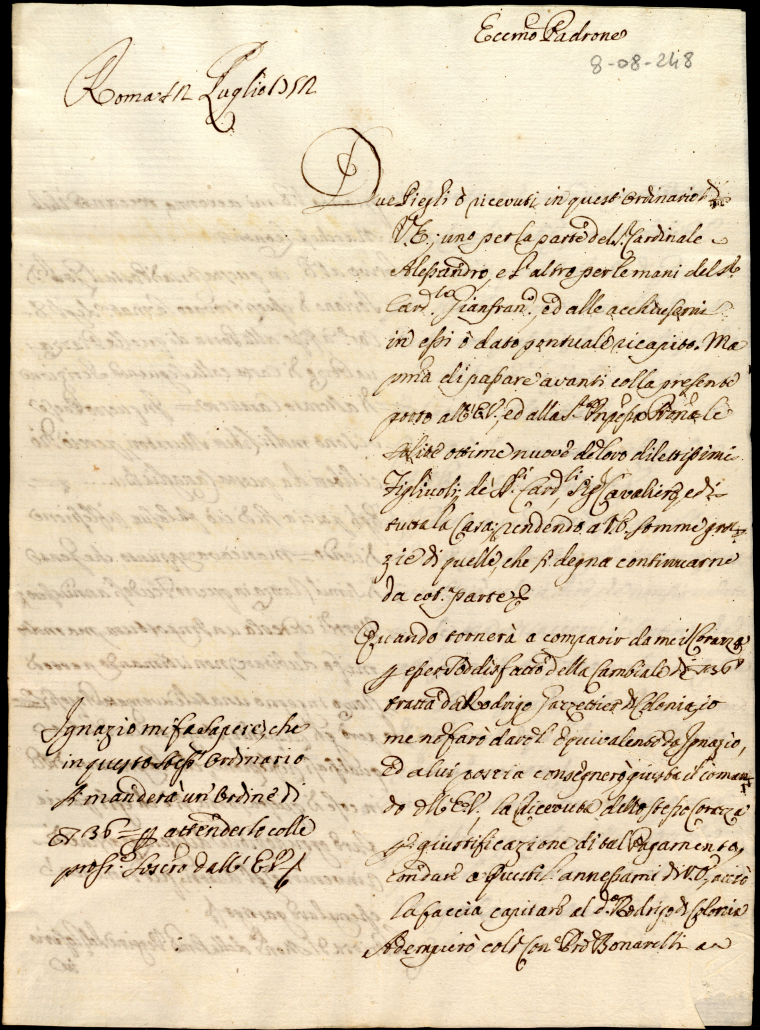 Eccmo Padrone
8-08-248
Roma 12 Luglio 1752
Due Pieghi ò ricevuti in quest'Ordinario di
V.E.; uno per la parte del Sr. Cardinale
Alessandro, e l'altro per le mani del Sr.
Card.le Gianfran.o, ed alle acchiusemi
in essi ò dato pontuale ricapito. Ma
pma di passare avanti colla presente
porto all'E.V., ed alla Sra. Pnpessa Pro͂na le
solite ottime nuove de loro dilettissimi
Figliuoli, de' SSri Cardli, Sigr Cavaliere, e di
tutta la Casa; rendendo a V.E. somme gra-
zie di quelle, che si degna continuarne
da cot.a parte
Quando tornerà a comparir da me il Corazza
p esser sodisfatto della Cambiale di 36
tratta da Rodrigo di Colonia, io
me ne farò dare l'equivalente da Ignazio,
ed a lui poscia consegnerò giusta il coman-
do dell'E.V., la ricevuta dello stesso Corazza
p giustificazione di tal Pagamento,
con dare a questi l'annessami di V.E., acciò
la faccia capitare al do. Rodrigo di Colonia
Adempierò col Pre Bonarelli a
Ignazio mi fa sapere, che
in questo stesso Ordinario
si manderà un'Ordine di
36 = p attenderlo colle
prosse. Lettere dall'E.V.